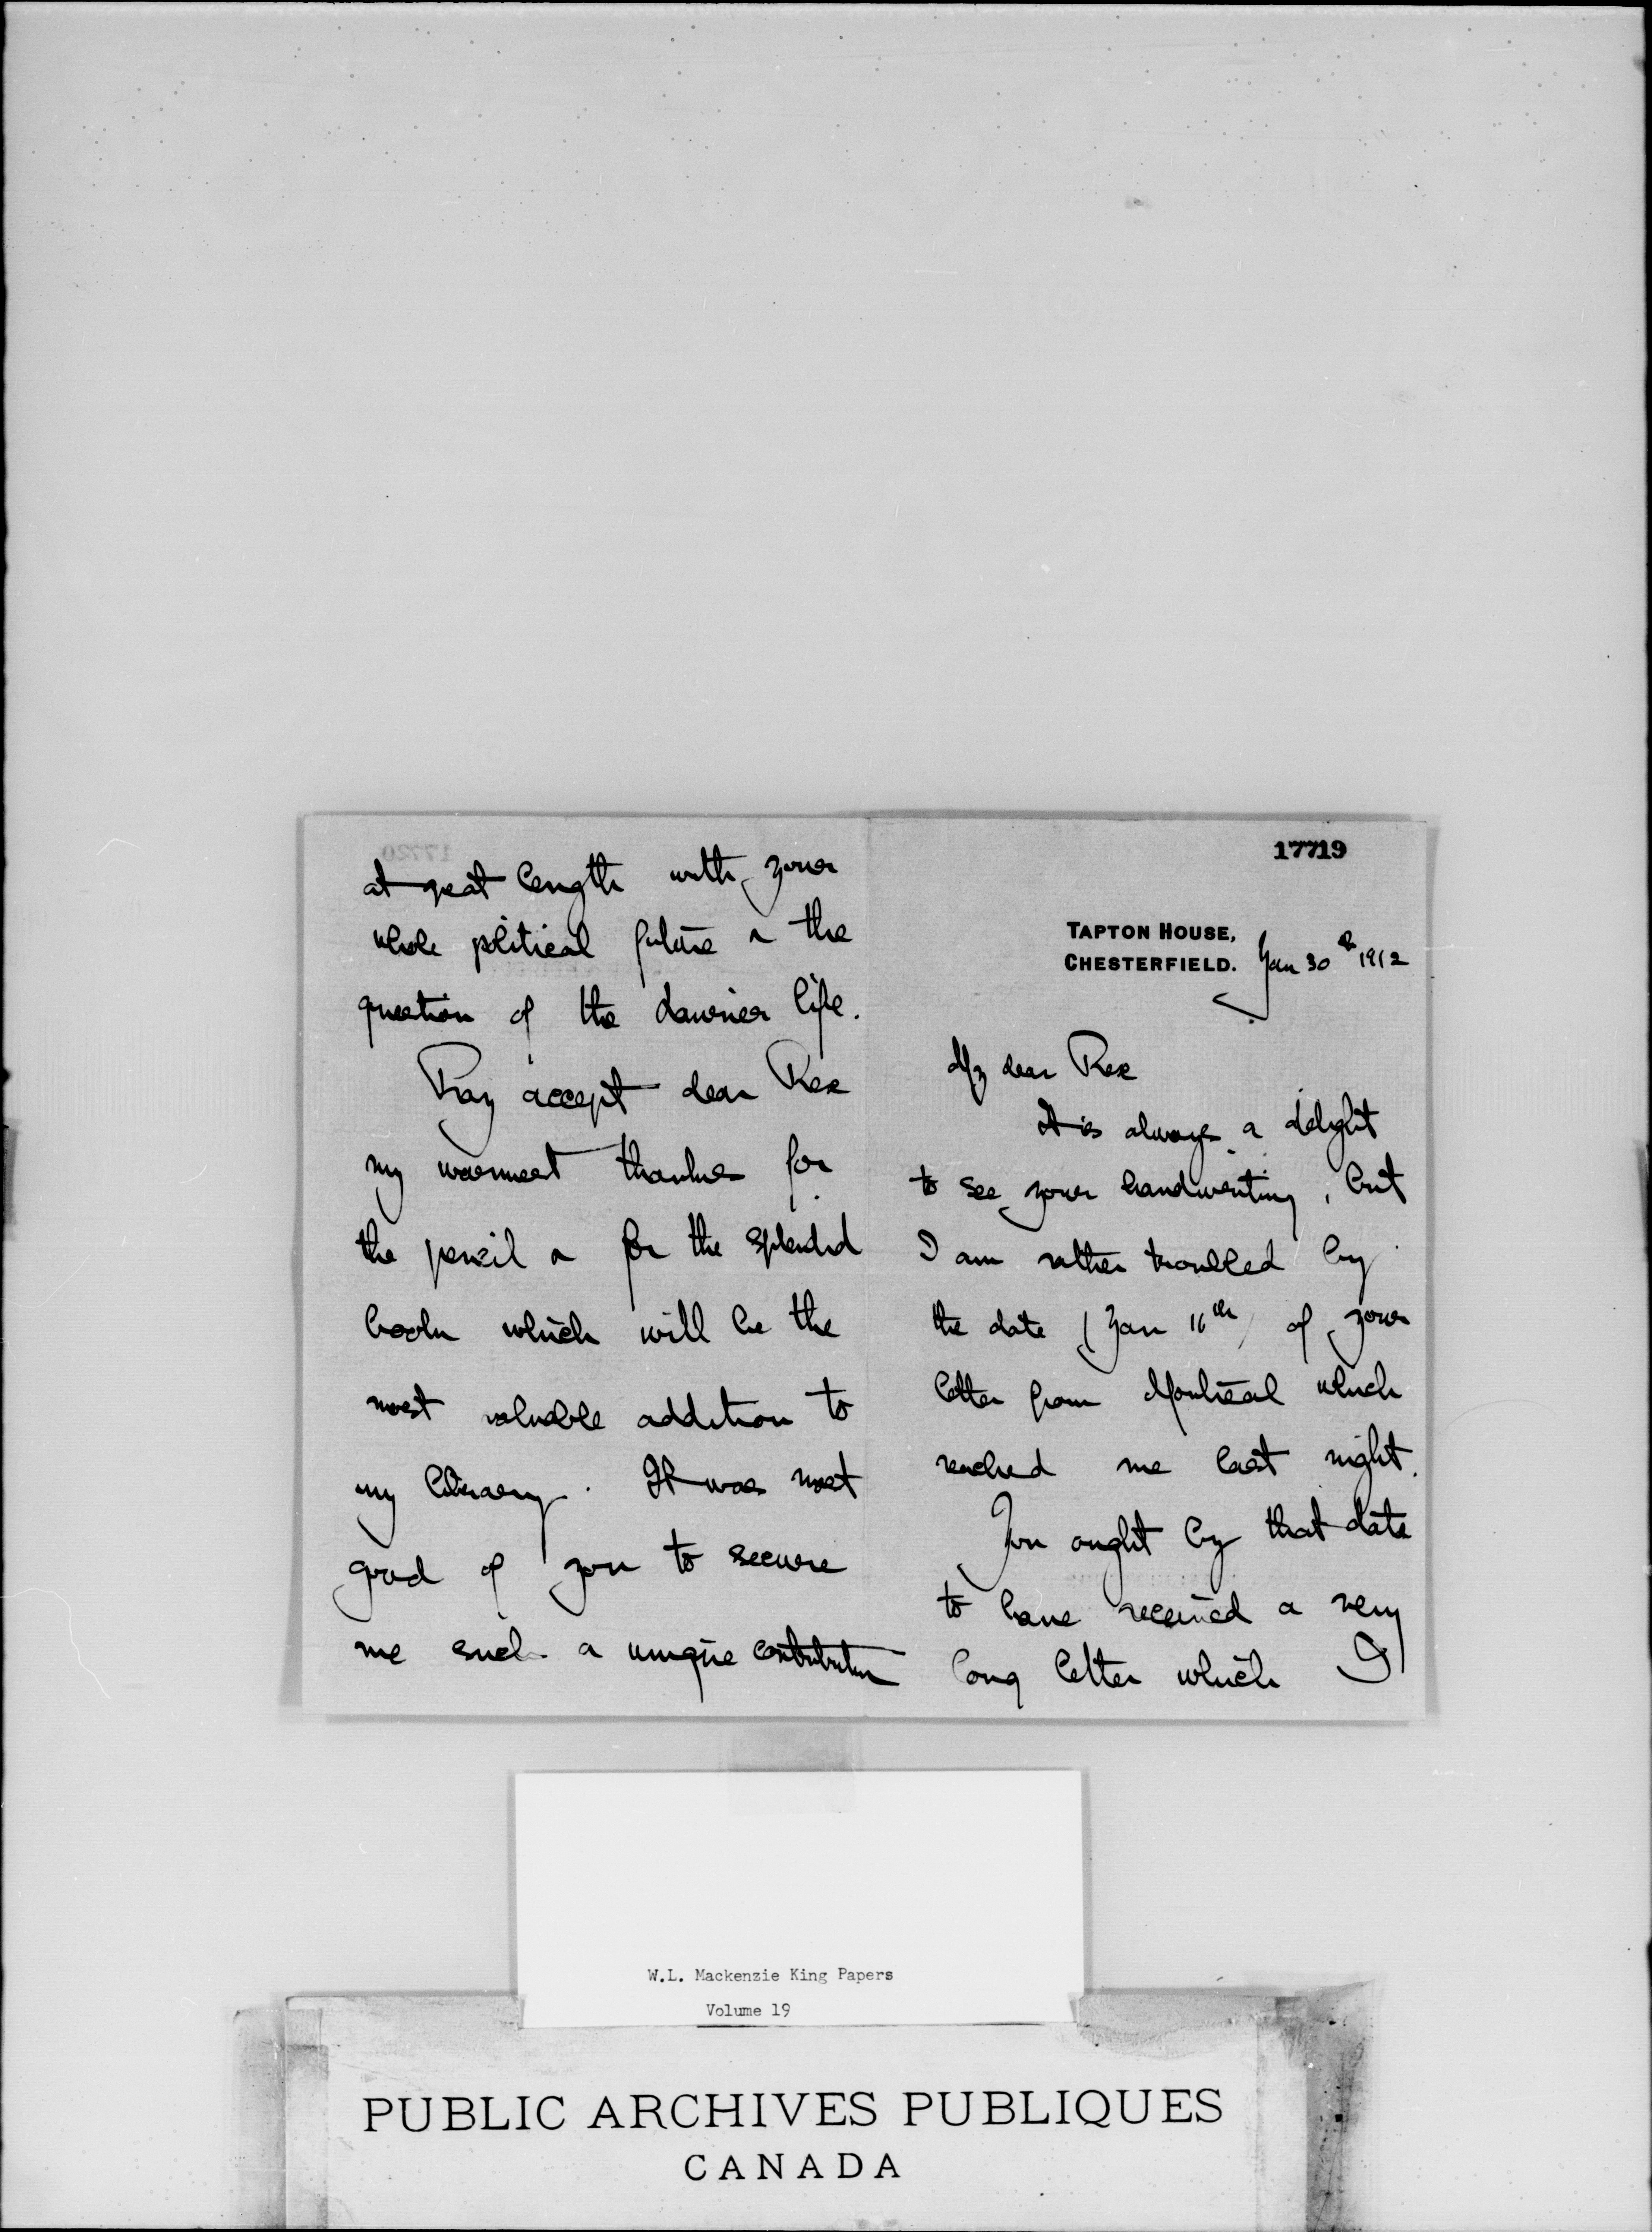 17719
TAPTON HOUSE,
CHESTERFIELD. Jan 30th 1912
My dear Rex
It is always a delight
to see your handwriting, but
I am rather troubled by
the date (Jan 16th) of your
letter from Montreal which
reached me last night.
You ought by that date
to have received a very
long letter which I
17720
at great length with your
whole political future & the
question of the Laurier life.
Pray accept dear Rex
my warmest thanks for
the pencil & for the splendid
book which will be the
most valuable addition to
my library. It was most
good of you to secure
me such a unique contribution
W.L. Mackenzie King Papers
Volume 19
PUBLIC ARCHIVES PUBLIQUES
CANADA